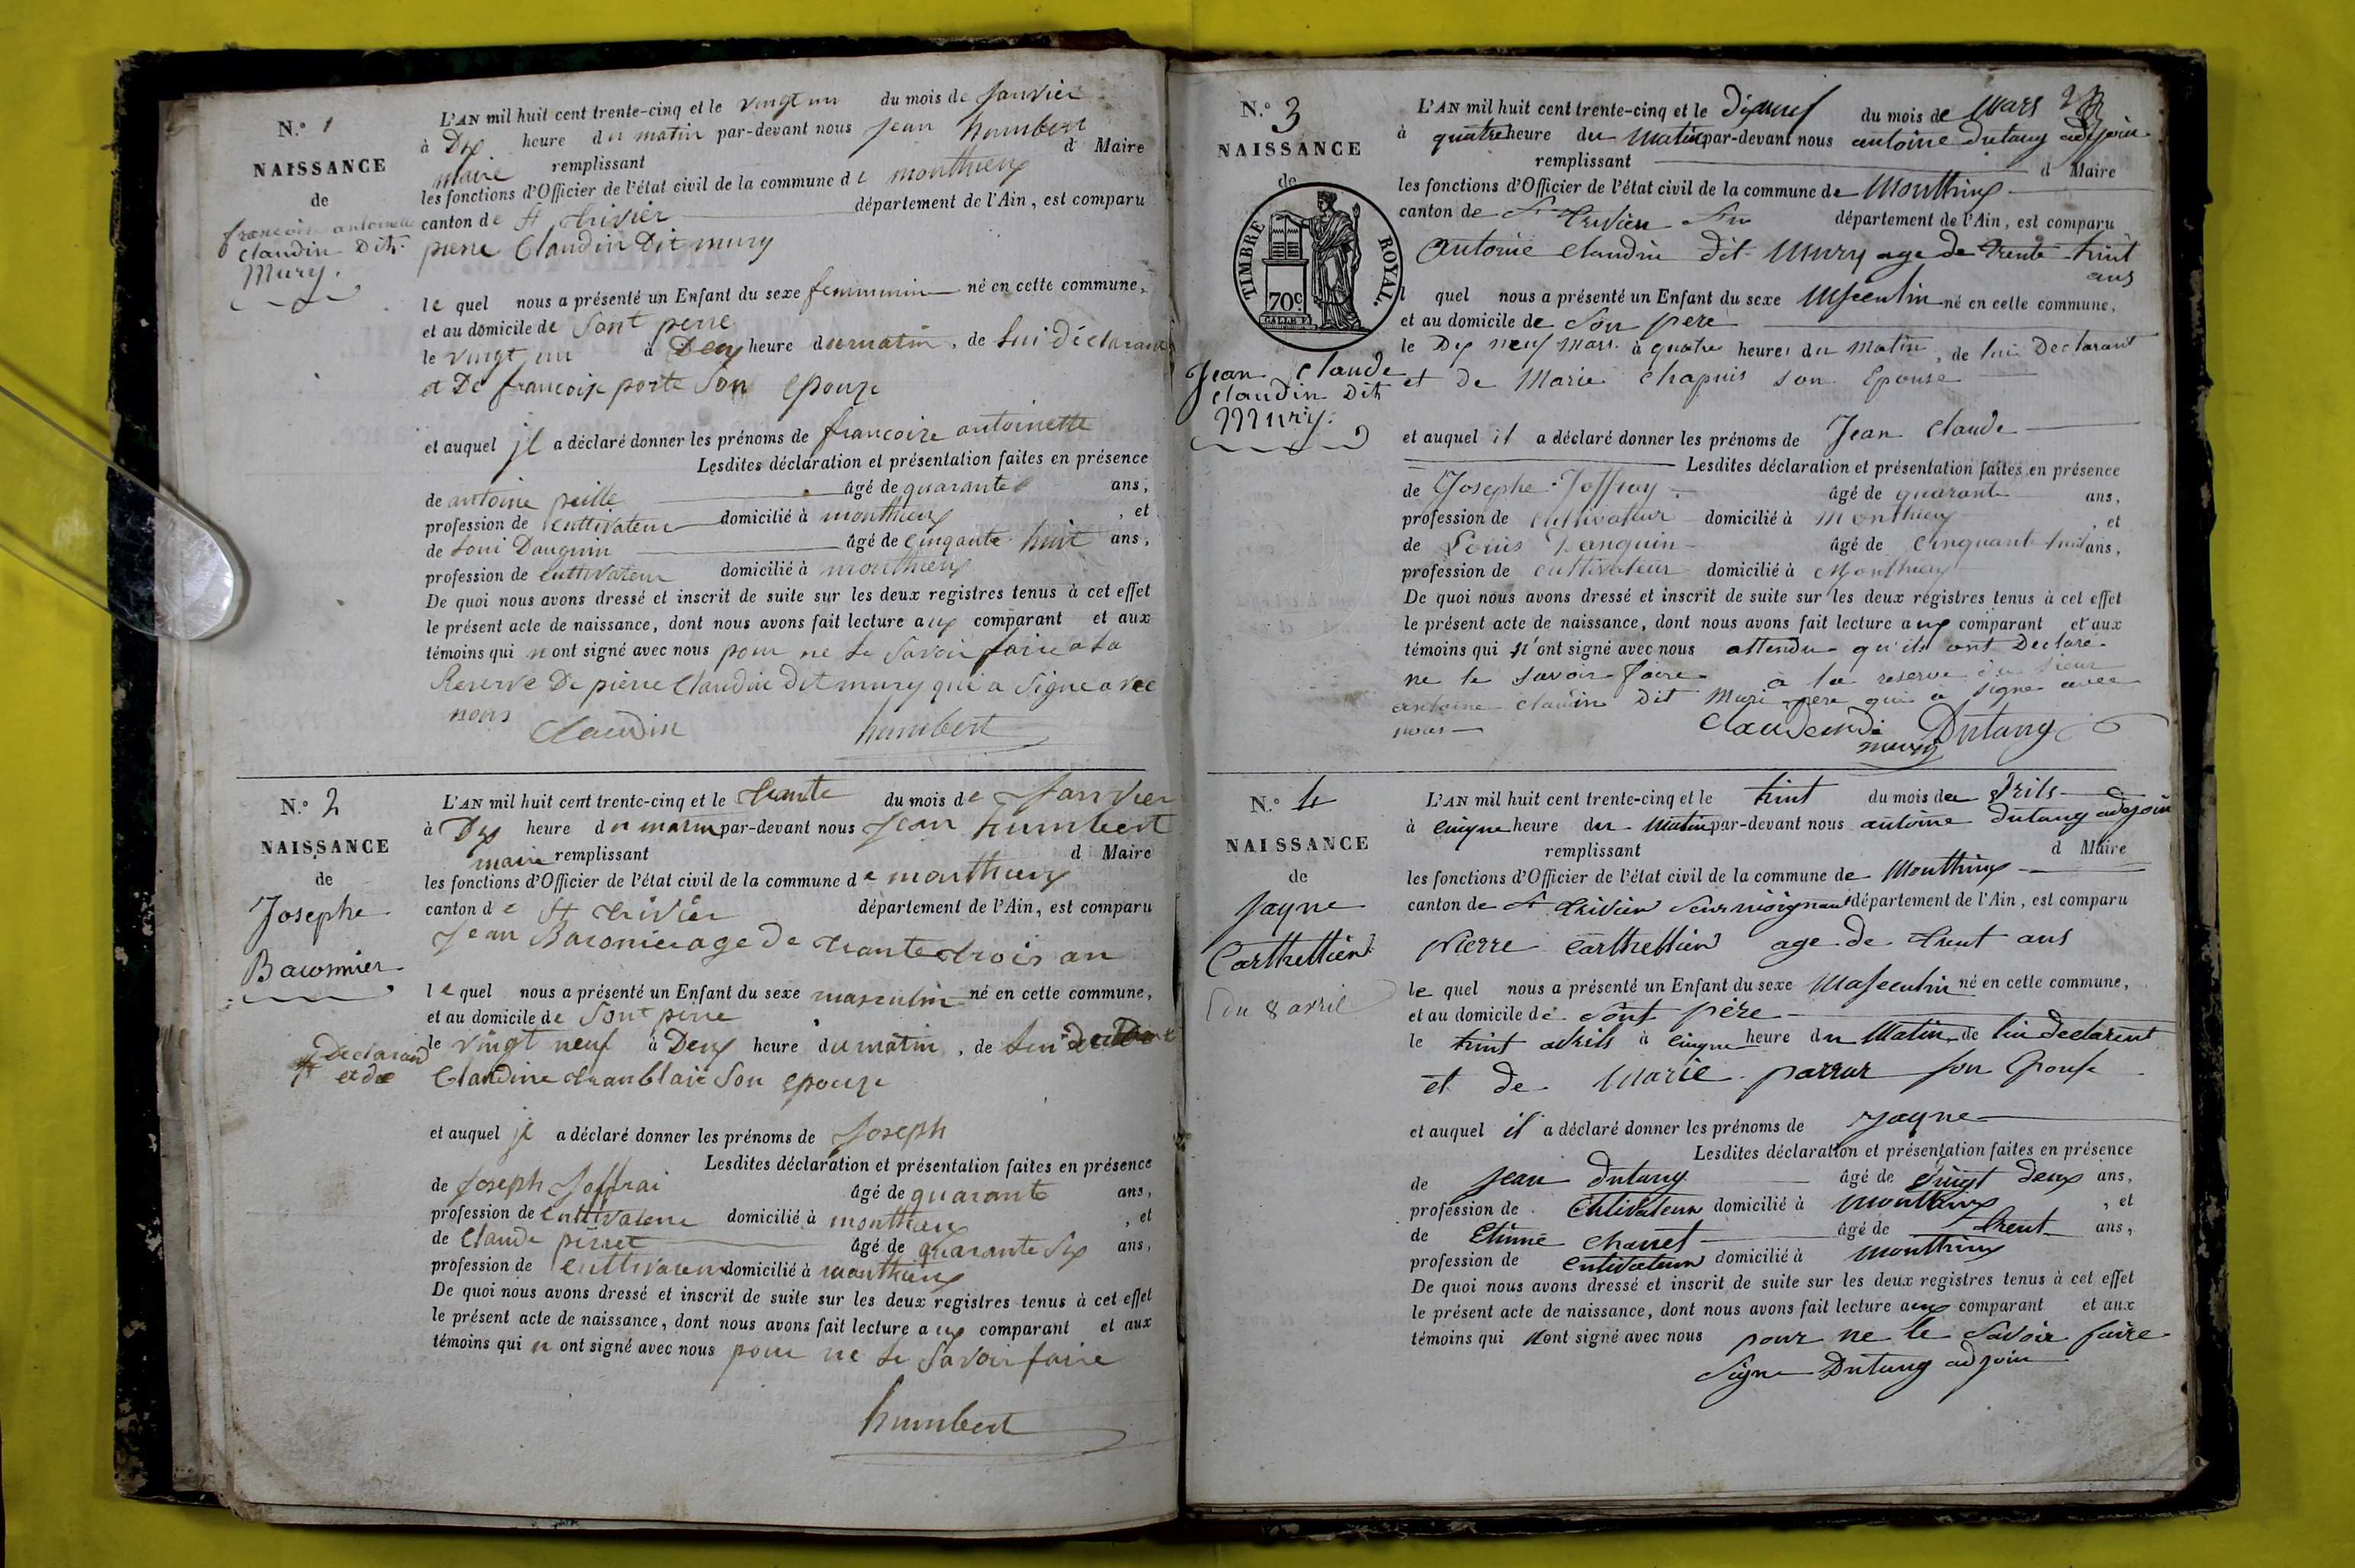 N.o 1
NAISSANCE
de
francoise antoinette
claudin Dit
Mury.
L'AN mil huit cent trente-cinq et le vingt un du mois de Janvier
à Dix heure du matin par-devant nous Jean humbert
maire remplissant d Maire
les fonctions d'Officier de l'état civil de la commune de monthieux
canton de St trivier département de l'Ain, est comparu
pierre Claudin Dit mury
le quel nous a présenté un Enfant du sexe femminin né en cette commune,
et au domicile de Sont perre
le vingt un à Deux heure du matin, de lui Déclarant
et De francoise porte Son epouze
et auquel jl a déclaré donner les prénoms de francoize antoinette
Lesdites déclaration et présentation faites en présence
de antoine peille âgé de quarante ans,
profession de cultivateur domicilié à monthieux, et
de Loui Danguin âgé de Cinqante huit ans,
profession de cultivateur domicilié à monthieux
De quoi nous avons dressé et inscrit de suite sur les deux registres tenus à cet effet
le présent acte de naissance, dont nous avons fait lecture aux comparant et aux
témoins qui n ont signé avec nous pour ne le Savoir faire a la
Reserve De pierre Claudin dit mury qui a Signe avec
nous
Claudin humbert
N.o 2
NAISSANCE
de
Josephe
Baconnier
Declarand
et de
L'AN mil huit cent trente-cinq et le trante du mois de Janvier
à Dix heure du matin par-devant nous Jean humbert
maire remplissant d Maire
les fonctions d'Officier de l'état civil de la commune de monthieux
canton de St trivier département de l'Ain, est comparu
Jean Baconier age De trante trois an
le quel nous a présenté un Enfant du sexe masculin né en cette commune,
et au domicile de Sont perre
le vingt neuf à Deux heure du matin, de lui
Claudine tranblaie Son epouze
et auquel jl a déclaré donner les prénoms de Joseph
Lesdites déclaration et présentation faites en présence
de Joseph Joffrai âgé de quarante ans,
profession de cultivateur domicilié à monthieux, et
de Claude perret âgé de quarante Six ans,
profession de cultivateur domicilié à monthieux
De quoi nous avons dressé et inscrit de suite sur les deux registres tenus à cet effet
le présent acte de naissance, dont nous avons fait lecture aux comparant et aux
témoins qui n ont signé avec nous pour ne le Savoir faire
humbert
N.o 3
NAISSANCE
de
TIMBRE ROYAL.
70c
Jean Claude
Claudin Dit
Mury.
L'AN mil huit cent trente-cinq et le dixneuf du mois de Mars
à quatre heure du Matin par-devant nous antoine Dutang adjoin
remplissant d Maire
les fonctions d'Officier de l'état civil de la commune de Monthieux
canton de St trivier département de l'Ain, est comparu
Antoine Claudin dit Mury age de trente
ans
l quel nous a présenté un Enfant du sexe né en cette commune,
et au domicile de Son pere
le Dix neuf mars à quatre heures du Matin, de lui Declarant
et de Marie Chapuis son Epouse
et auquel il a déclaré donner les prénoms de Jean Claude
Lesdites déclaration et présentation faites en présence
de Josephe Joffray âgé de quarante ans,
profession de Cultivateur domicilié à Monthieux, et
de Louis Danguin âgé de Cinquante huit ans,
profession de Cultivateur domicilié à Monthieux
De quoi nous avons dressé et inscrit de suite sur les deux registres tenus à cet effet
le présent acte de naissance, dont nous avons fait lecture aux comparant et aux
témoins qui n'ont signé avec nous attendu qu'ils ont Declaré
ne le savoir faire à la reserve du sieur
antoine claudin Dit Muri pere qui a signe avec
nous
Dutang
mury
N.o 4
NAISSANCE
de
Jayne
Carthellier
(du 8 avril
L'AN mil huit cent trente-cinq et le du mois de
à cinque heure du Matin par-devant nous antoine Dutang adjoin
remplissant d Maire
les fonctions d'Officier de l'état civil de la commune de Monthieux
canton de St trivier département de l'Ain, est comparu
Pierre Carthellier age de trent ans
le quel nous a présenté un Enfant du sexe Maseculin né en cette commune,
et au domicile de sont père
le à cinque heure du Matin, de lui declarent
et de Marie son Epouse
et auquel il a déclaré donner les prénoms de Jayne
Lesdites déclaration et présentation faites en présence
de Jean Dutang âgé de vingt deux ans,
profession de domicilié à Monthieux, et
de Etinne âgé de trent ans,
profession de domicilié à Monthieux
De quoi nous avons dressé et inscrit de suite sur les deux registres tenus à cet effet
le présent acte de naissance, dont nous avons fait lecture aux comparant et aux
témoins qui n ont signé avec nous pour ne le Savoir faire
Signe Dutang adjoin